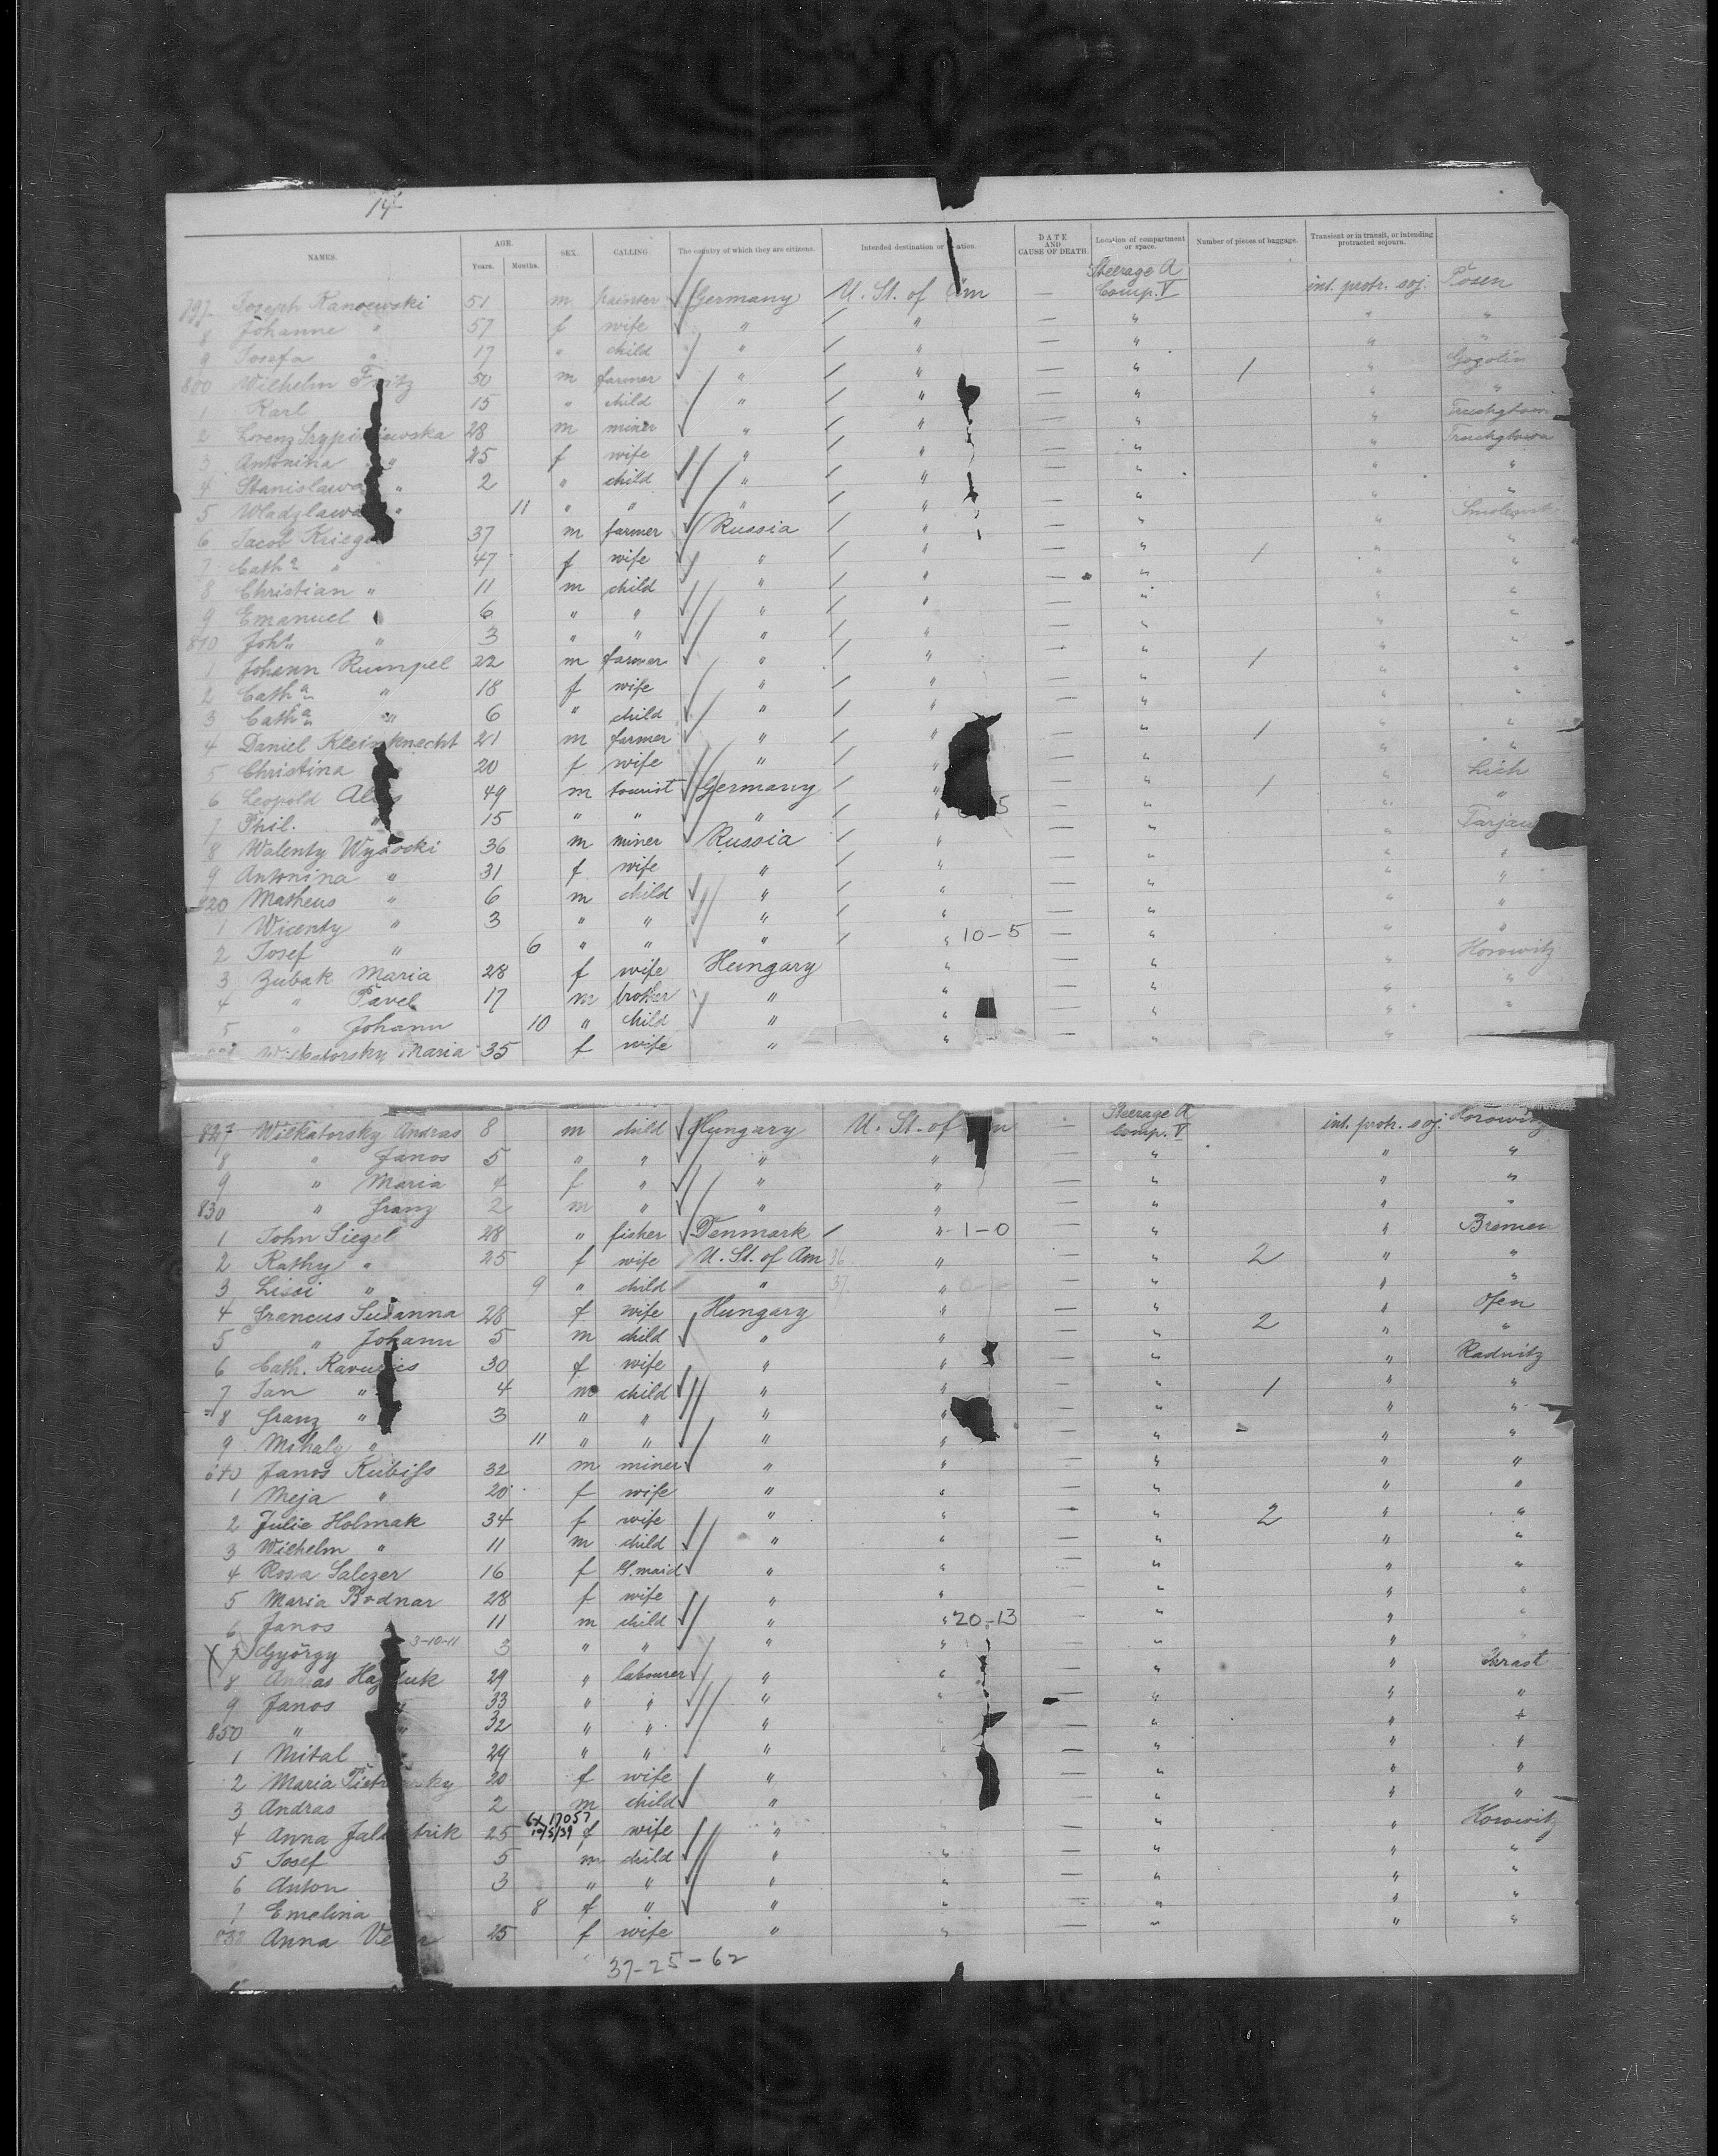 14
NAMES. AGE. Years. Months. SEX. CALLING. The country of which they are citizens. Intended destination or DATE AND CAUSE OF DEATH. Location of compartment or space. Number of pieces of baggage. Transient or in transit, or intending protracted sojourn.
797 Joseph 51 m Germany U. St. of Am — Steerage A Comp. V int. protr. soj. Posen
8 Johanne " 57 f wife " " — " " "
9 Josefa " 17 " child " " — " " "
800 Wilhelm Fritz 50 m farmer " " — " 1 " Gogolin
1 Karl 15 " child " " — " " "
2 Lorenz 28 m miner " " — " "
3 Antonina " 25 f wife " " — " "
4 Stanislawa " 2 " child " " — " " "
5 Wladzlawa " 11 " " " " — " " "
6 Jacob 37 m farmer Russia " — " " Smolensk
7 Catha " 47 f wife " " — " 1 " "
8 Christian " 11 m child " " — " " "
9 Emanuel 6 " " " " — " " "
810 Joh. " 3 " " " " — " " "
1 Johann Rumpel 22 m farmer " " — " 1 " "
2 Catha " 18 f wife " " — " " "
3 Catha " 6 " child " " — " " "
4 Daniel Kleinknecht 21 m farmer " " — " 1 " "
5 Christina 20 f wife " " — " " "
6 Leopold 49 m tourist Germany " — " 1 " Lich
7 Phil. " 15 " " " " 5 — " " "
8 Walenty Wysocki 36 m miner Russia " — " "
9 Antonina " 31 f wife " " — " " "
820 Matheus " 6 m child " " — " " "
1 Wicenty " 3 " " " " — " " "
2 Josef " 6 " " " " 10-5 — " " "
3 Zubak Maria 28 f wife Hungary " — " " Horowitz
4 " Pavel 17 m brother " " — " " "
5 " Johann 10 " child " " — " " "
Maria 35 f wife " " — " "
827 Wilkatorsky Andras 8 m child Hungary U. St. of — Steerage A Comp. V int. protr. soj. Horowitz
8 " Janos 5 " " " " — " " "
9 " Maria 4 f " " " — " " "
830 " Franz 2 m " " " — " " "
1 John Siegel 28 " fisher Denmark " 1-0 — " " Bremen
2 Kathy " 25 f wife U. St. of Am 36 " — " 2 " "
3 Lissi " 9 " child " 37 " — " " "
4 Francus Susanna 28 f wife Hungary " — " " Ofen
5 " Johann 5 m child " " — " 2 " "
6 Cath. 30 f wife " " — " " Radnitz
7 Jan " 4 m child " " — " 1 " "
8 Franz " 3 " " " " — " " "
9 Mihaly " 11 " " " " — " " "
840 Janos Kubiss 32 m miner " " — " " "
1 Meja " 20 f wife " " — " " "
2 Julie Holmak 34 f wife " " — " 2 " "
3 Wilhelm " 11 m child " " — " " "
4 Rosa Salczer 16 f S. maid " " — " " "
5 Maria Bodnar 28 f wife " " — " " "
6 Janos 11 m child " " 20-13 — " " "
X 7 György 3-10-11 3 " " " " — " " "
8 Andras 29 " labourer " " — " "
9 Janos " 33 " " " " — " " "
850 " " 32 " " " " — " " "
1 Mital 29 " " " " — " " "
2 Maria 20 f wife " " — " " "
3 Andras 2 m child " " — " " "
4 Anna 25 6X 17057 10/5/39 f wife " " — " " Horowitz
5 Josef 5 m child " " — " " "
6 Anton 3 " " " " — " " "
7 Emelina 8 f " " " — " " "
858 Anna 25 f wife " " — " " "
37-25-62